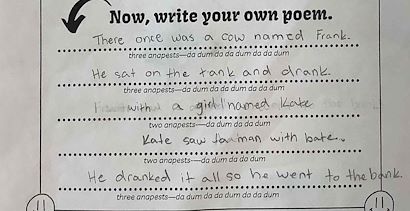 Now, write your own poem.
There once was a cow named Frank.
three anapests—da dum da da dum da da dum
He sat on the tank and drank.
three anapests—da dum da da dum da da dum
with a girl named Kate
two anapests—da dum da da dum
Kate saw a man with bate.
two anapests—da dum da da dum
He dranked it all so he went to the bank.
three anapests—da dum da da dum da da dum